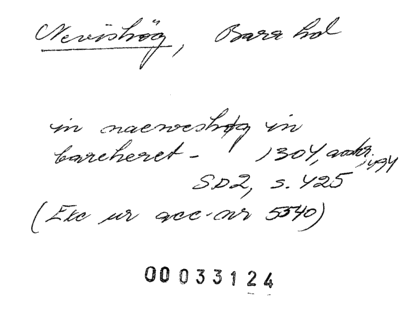 Nevishög, Bara hd
in naeweshøg in
bareheret - 1304, avskr. 1494
SD2, s. 425
(Exc ur acc-nr 5540)
00033124